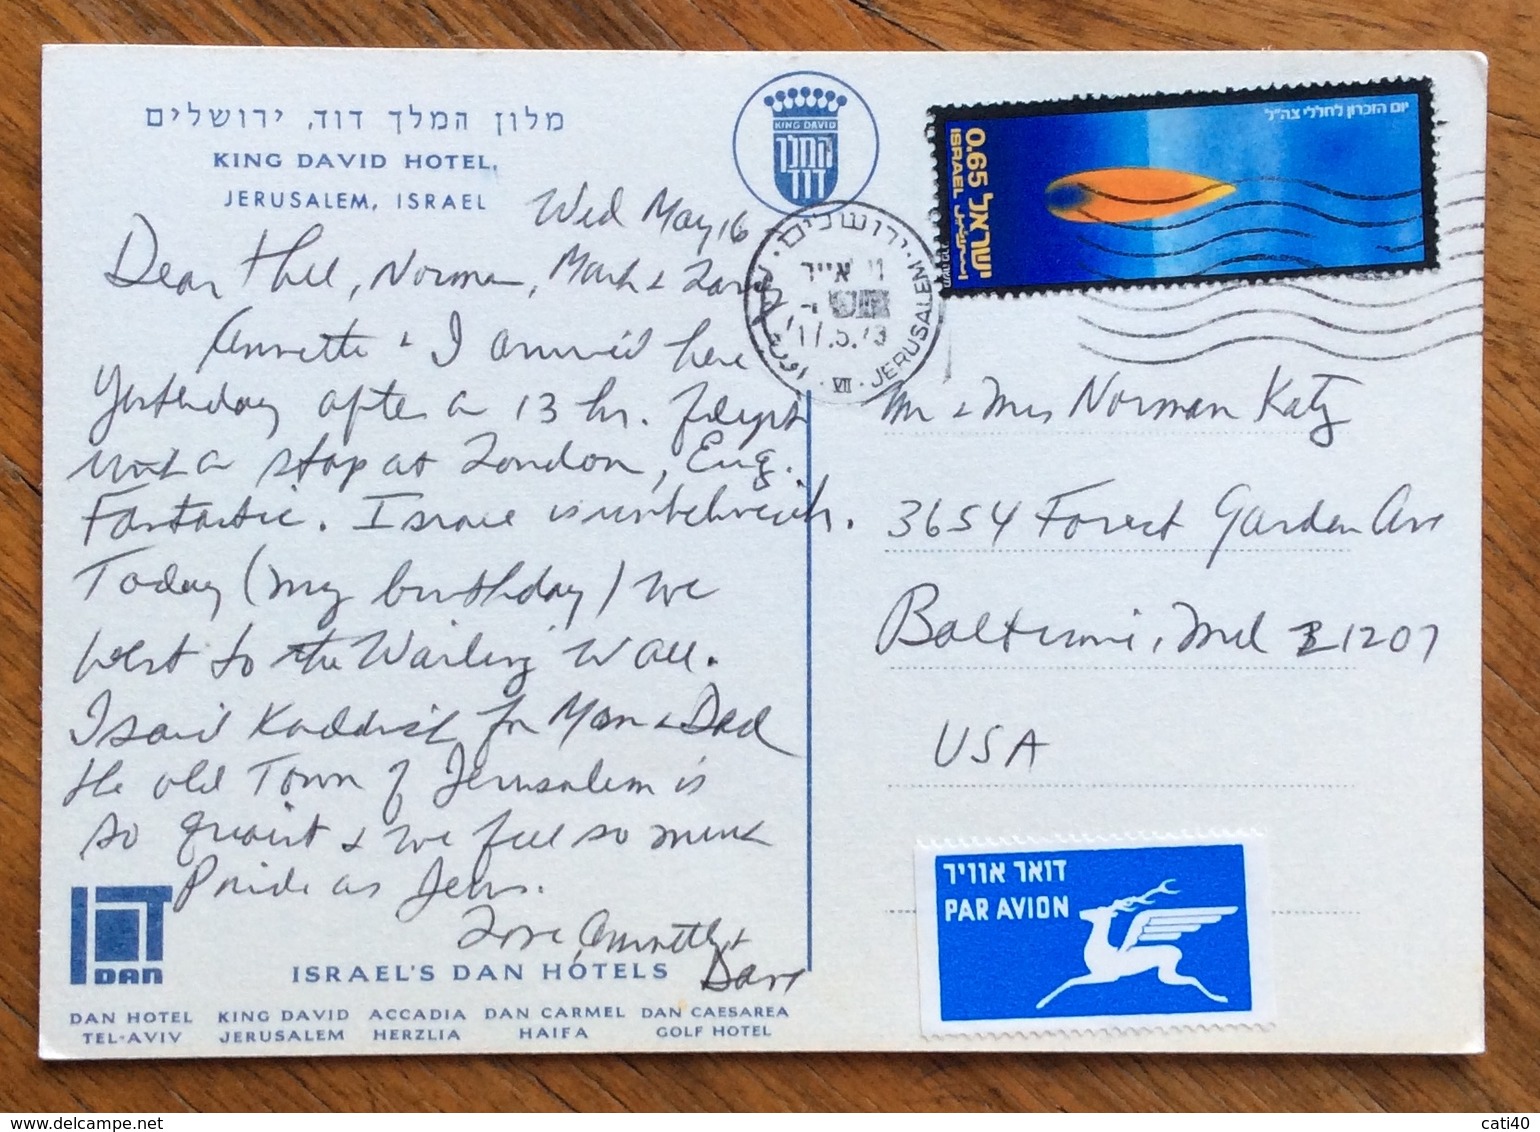 מלון המלך דוד, ירושלים
KING DAVID HOTEL,
JERUSALEM, ISRAEL
KING DAVID
המלך
דוד
Wed May 16
Dear Norman, Mark &
Annette & I arrived here
Yesterday after a 13 hr. flight
with a stop at London, Eng.
Fantastic. Israel is unbelievable.
Today (my birthday) we
went to the Wailing Wall.
I said Kaddish for Mom & Dad
the old Town of Jerusalem is
so quaint & we feel so much
Pride as Jews.
Love Annette &
Dave
DAN
ISRAEL'S DAN HOTELS
DAN HOTEL KING DAVID ACCADIA DAN CARMEL DAN CAESAREA
TEL-AVIV JERUSALEM HERZLIA HAIFA GOLF HOTEL
יום הזכרון לחללי צה"ל
0.65
ISRAEL ישראל
ירושלים
אייר
17.5.73
VII · JERUSALEM
Mr & Mrs Norman Katz
3654 Forest Garden Ave
Baltimore, Md 21207
USA
דואר אוויר
PAR AVION
www.delcampe.net
cati40